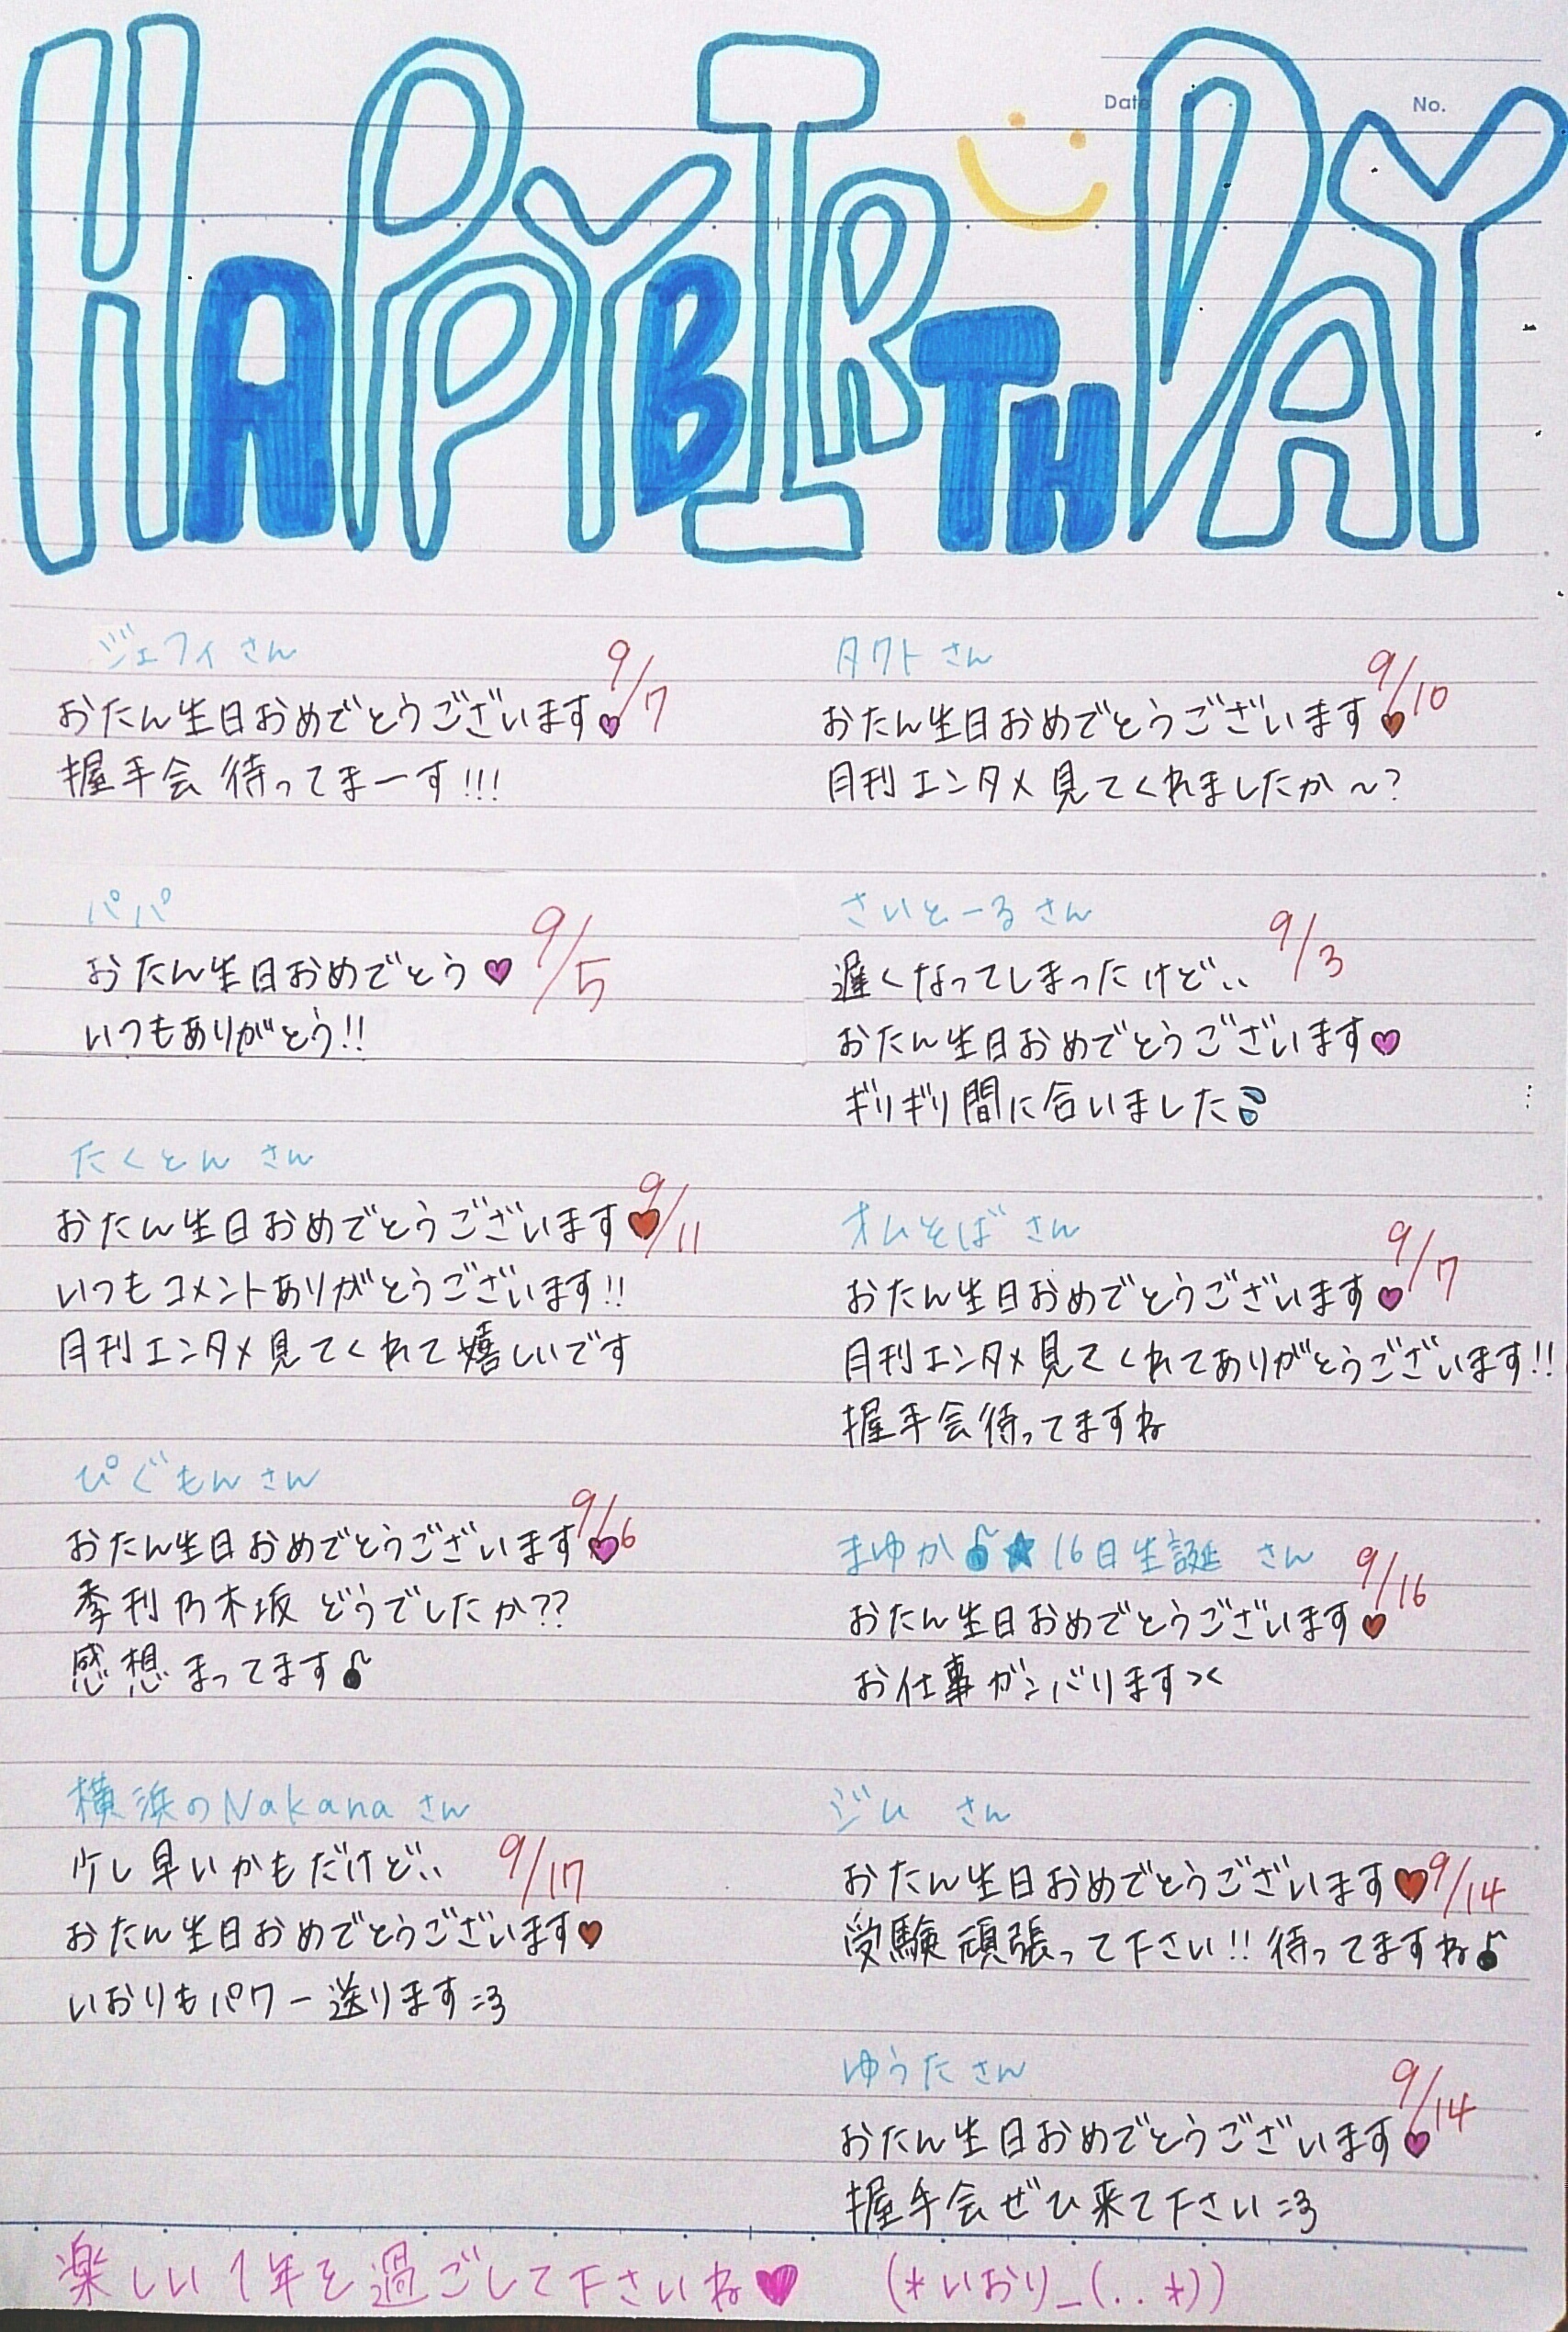 HAPPY BIRTHDAY
Date
No.
ジェフィさん
9/7
おたん生日おめでとうございます♥
握手会待ってまーす!!!
パパ
9/5
おたん生日おめでとう♥
いつもありがとう!!
たくとんさん
9/11
おたん生日おめでとうございます♥
いつもコメントありがとうございます!!
月刊エンタメ見てくれて嬉しいです
ぴぐもんさん
9/6
おたん生日おめでとうございます♥
季刊乃木坂どうでしたか??
感想まってます♪
横浜のNakanaさん
少し早いかもだけど、、 9/17
おたん生日おめでとうございます♥
いおりもパワー送ります=3
タクトさん
9/10
おたん生日おめでとうございます♥
月刊エンタメ見てくれましたか〜?
さいとーるさん
9/3
遅くなってしまったけど、、
おたん生日おめでとうございます♥
ギリギリ間に合いました💦
オムそばさん
9/7
おたん生日おめでとうございます♥
月刊エンタメ見てくれてありがとうございます!!
握手会待ってますね
まゆか♪★16日生誕 さん
9/16
おたん生日おめでとうございます♥
お仕事ガンバります><
ジム さん
おたん生日おめでとうございます♥ 9/14
受験頑張って下さい!!待ってますね♪
ゆうたさん
9/14
おたん生日おめでとうございます♥
握手会ぜひ来て下さい=3
楽しい1年を過ごして下さいね♥ (*いおり_(..*))